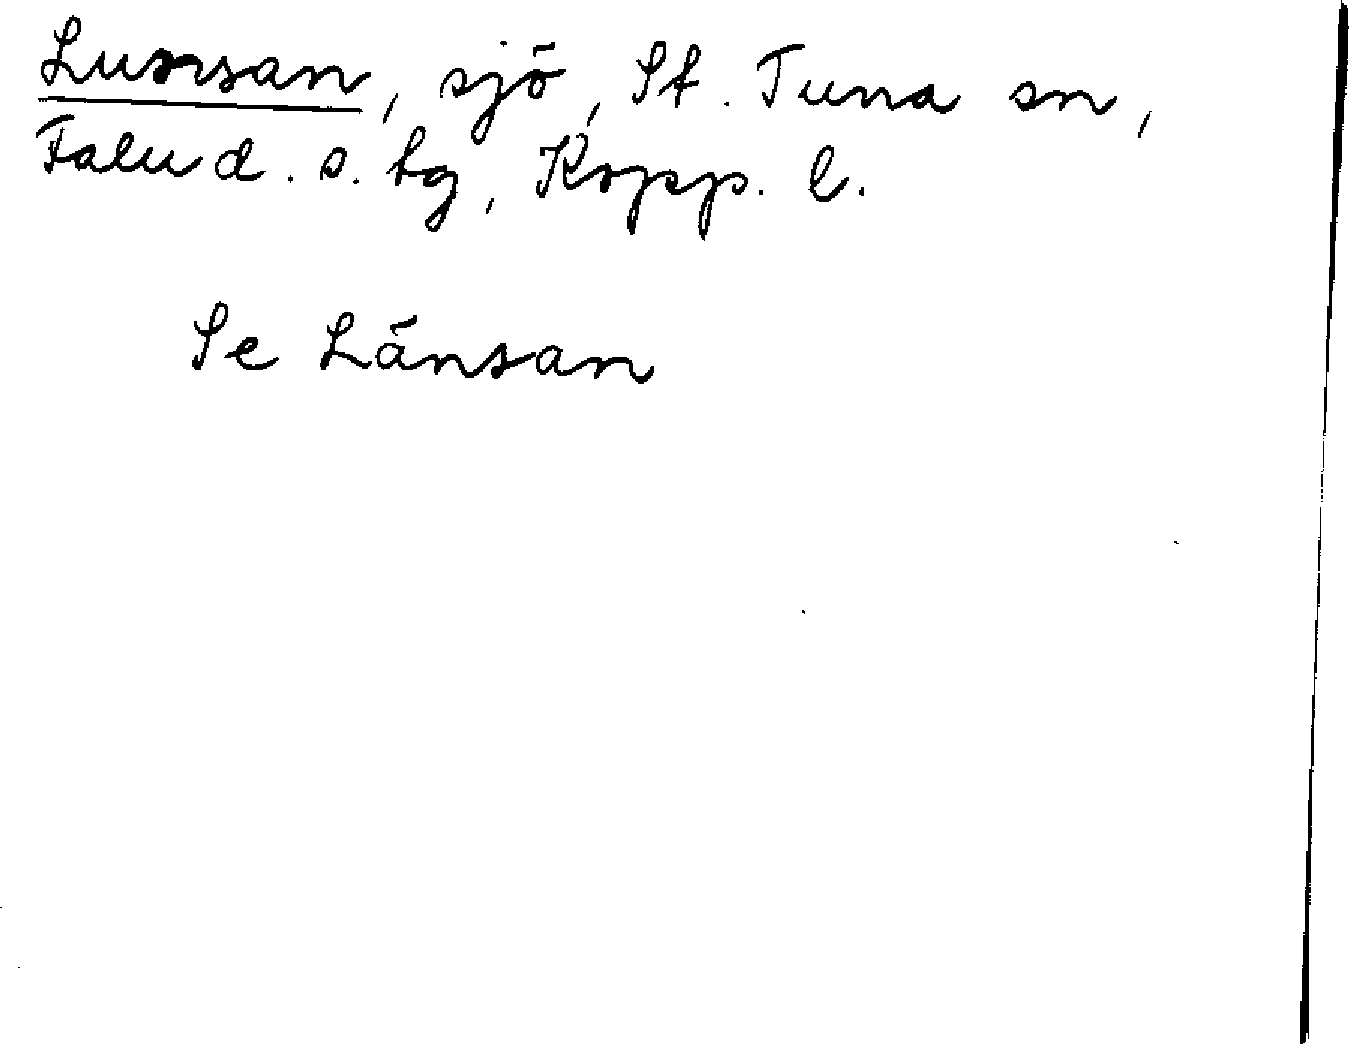 Lussan, sjö, St. Tuna sn,
Falu d. s. tg, Kopp. l.
Se Länsan